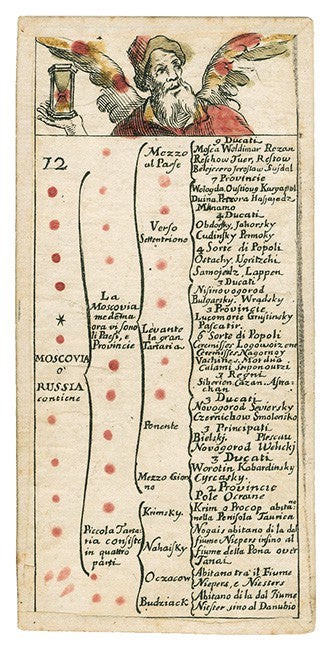 12
MOSCOVIA
o'
RUSSIA
contiene
La
Moscovia
medema
ora vi sono
li Paesi, e
Provincie
Piccola Tana
ria consiste
in quattro
parti
Mezzo
al Paese
Verso
Settentrione
Levante
la gran
Tartaria
Ponente
Mezzo Gior
no
Krimsky
Nahaisky
Oczacow
Budziack
9 Ducati
Mosca Woldimar Rezan
Reschow Tuer, Restow
Belejezero Jeroslaw Susdal
7 Provincie
Wologda Oustioug Kargapol
Duina
4 Ducati
Obdorsky Jahorsky
Cudinsky Permoky
4 Sorte di Popoli
Ostachy, Ugritzchi
Samojedz Lappen
3 Ducati
Nisinovogorod
Bulgarsky. Wradsky
3 Provincie
Lucomorie Grustinsky
Pascatir
6 Sorte di Popoli
Ceremisses Logowoizene
Ceremisses Nagornoy
3 Regni
Siberion Cazan
kan
3 Ducati
Novogorod Seversky
Czernichow Smolensko
3 Principati
Bielski Plescau
Novogorod Welickj
3 Ducati
Worotin Kabardinsky
Cyrcasky
2 Provincie
Pole Ocrane
Krim o Procop abita
nella Penisola Taurica
Nogais abitano di la dal
fiume Niepers insino al
fiume della Pona over
Tanai
Abitano tra il Fiume
Niepers, e Niesters
Abitano di la dal Fiume
Niester sino al Danubio